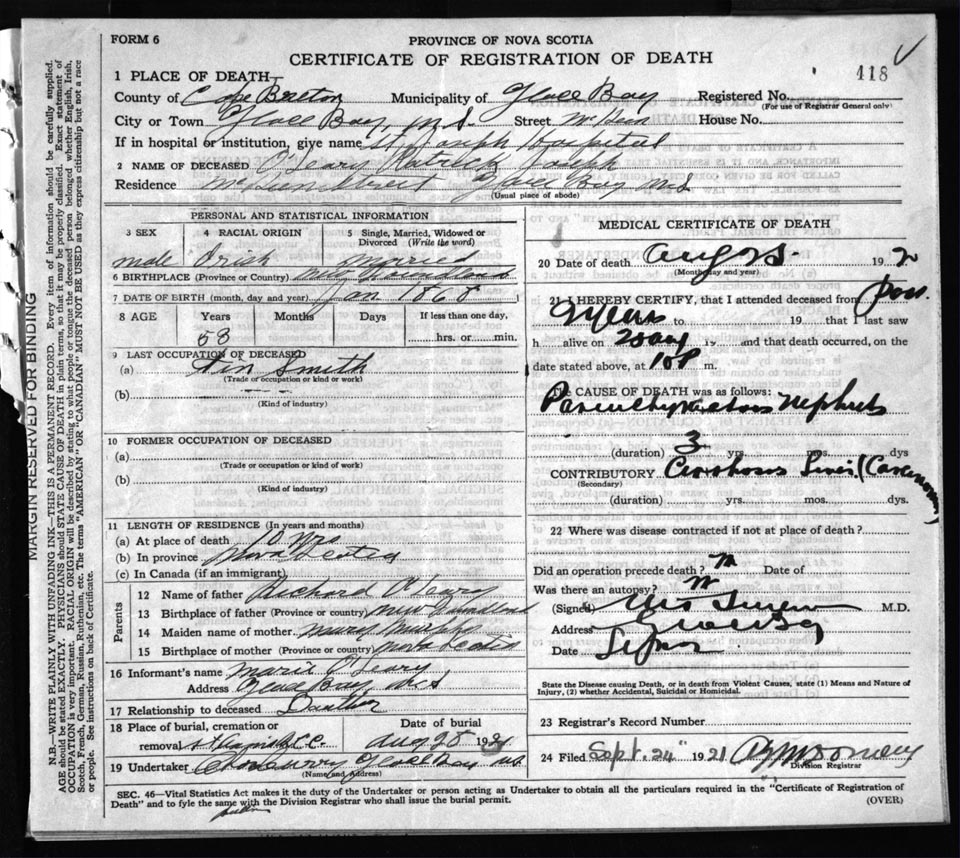 FORM 6
PROVINCE OF NOVA SCOTIA
CERTIFICATE OF REGISTRATION OF DEATH
418
1 PLACE OF DEATH
County of Cape Breton Municipality of Glace Bay Registered No.
(For use of Registrar General only)
City or Town Glace Bay, N.S. Street House No.
If in hospital or institution, give name St Joseph Hospital
2 NAME OF DECEASED O'Leary Patrick Joseph
Residence Glace Bay NS
(Usual place of abode)
PERSONAL AND STATISTICAL INFORMATION
3 SEX
4 RACIAL ORIGIN
5 Single, Married, Widowed or Divorced (Write the word)
male Irish married
6 BIRTHPLACE (Province or Country) Newfoundland
7 DATE OF BIRTH (month, day and year) Jan 1868
8 AGE Years Months Days If less than one day,
53 hrs. or min.
9 LAST OCCUPATION OF DECEASED
(a) Tin Smith
(Trade or occupation or kind or work)
(b)
(Kind of industry)
10 FORMER OCCUPATION OF DECEASED
(a)
(Trade or occupation or kind of work)
(b)
(Kind of industry)
11 LENGTH OF RESIDENCE (In years and months)
(a) At place of death 10 yrs
(b) In province Nova Scotia
(c) In Canada (if an immigrant)
Parents
12 Name of father Richard O'Leary
13 Birthplace of father (Province or country) Newfoundland
14 Maiden name of mother Mary Murphy
15 Birthplace of mother (Province or country) Nova Scotia
16 Informant's name Marie O'Leary
Address Glace Bay, N.S
17 Relationship to deceased Daughter
18 Place of burial, cremation or removal Date of burial
Aug 28 1921
19 Undertaker Chas Curry Glace Bay NS
(Name and Address)
MEDICAL CERTIFICATE OF DEATH
20 Date of death Aug 25 192
(Month, day and year)
21 I HEREBY CERTIFY, that I attended deceased from
2 years to 19 that I last saw
h alive on 25 Aug 19 and that death occurred, on
date stated above, at 10 P m.
The CAUSE OF DEATH was as follows:
Parenchymatous Nephritis
(duration) 3 yrs. mos. dys.
CONTRIBUTORY Cirrhosis Liver (Carcinoma)
(Secondary)
(duration) yrs. mos. dys
22 Where was disease contracted if not at place of death?
Did an operation precede death? Date of
Was there an autopsy?
(Signed) M.D.
Address Glace Bay
Date
State the Disease causing Death, or in death from Violent Causes, state (1) Means and Nature of Injury, (2) whether Accidental, Suicidal or Homicidal.
23 Registrar's Record Number
24 Filed Sept. 24" 1921
Division Registrar
SEC. 46—Vital Statistics Act makes it the duty of the Undertaker or person acting as Undertaker to obtain all the particulars required in the "Certificate of Registration of
Death" and to fyle the same with the Division Registrar who shall issue the burial permit.
(OVER)
MARGIN RESERVED FOR BINDING
N.B.—WRITE PLAINLY WITH UNFADING INK—THIS IS A PERMANENT RECORD. Every item of information should be carefully supplied.
AGE should be stated EXACTLY. PHYSICIANS should STATE CAUSE OF DEATH in plain terms, so that it may be properly classified. Exact statement of
OCCUPATION is very important. RACIAL ORIGIN will be described by stating to what people or tongue the deceased person belonged, whether English, Irish,
Scotch, French, German, Russian, Ruthenian, etc. The terms "AMERICAN" or "CANADIAN" MUST NOT BE USED as they express citizenship but not a race
or people. See instructions on back of Certificate.